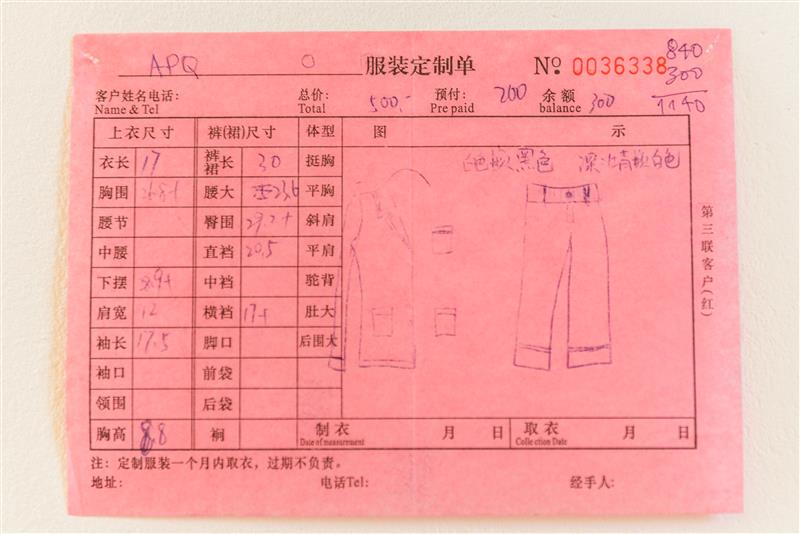 APQ 服装定制单 Nº 0036338 840
300
1140
客户姓名电话: 总价: 500.- 预付: 200 余额 300
Name & Tel Total Pre paid balance
上衣尺寸 裤(裙)尺寸 体型 图 示
衣长 17 裤裙长 30 挺胸 黑色 白色
胸围 腰大 平胸
腰节 臀围 29.2+ 斜肩
中腰 直裆 20.5 平肩
下摆 中裆 驼背
肩宽 12 横裆 17+ 肚大
袖长 17.5 脚口 后围大
袖口 前袋
领围 后袋
胸高 8.8 裥 制衣 月 日 取衣 月 日
Date of measurement Collection Date
第三联客户(红)
注: 定制服装一个月内取衣,过期不负责。
地址: 电话Tel: 经手人: